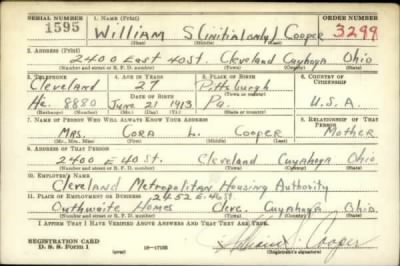 SERIAL NUMBER 1. NAME (Print) ORDER NUMBER
1595 William S (initial only) Cooper 3299
(First) (Middle) (Last)
2. ADDRESS (Print)
2400 East 40 St. Cleveland Cuyahoga Ohio
(Number and street or R. F. D. number) (Town) (County) (State)
3. TELEPHONE 4. AGE IN YEARS 5. PLACE OF BIRTH 6. COUNTRY OF CITIZENSHIP
Cleveland 27 Pittsburgh
(Town or county)
DATE OF BIRTH
He. 8880 June 21 1913 Pa. U.S.A.
(Exchange) (Number) (Mo.) (Day) (Yr.) (State or country)
7. NAME OF PERSON WHO WILL ALWAYS KNOW YOUR ADDRESS 8. RELATIONSHIP OF THAT PERSON
Mrs. Cora L. Cooper Mother
(Mr., Mrs., Miss) (First) (Middle) (Last)
9. ADDRESS OF THAT PERSON
2400 E 40 St. Cleveland Cuyahoga Ohio
(Number and street or R. F. D. number) (Town) (County) (State)
10. EMPLOYER'S NAME
Cleveland Metropolitan Housing Authority
11. PLACE OF EMPLOYMENT OR BUSINESS 2452 E. 46 St
Outhwaite Homes Cleve. Cuyahoga Ohio.
(Number and street or R. F. D. number) (Town) (County) (State)
I AFFIRM THAT I HAVE VERIFIED ABOVE ANSWERS AND THAT THEY ARE TRUE.
REGISTRATION CARD
D. S. S. Form 1 (over) 16—17105 William S. Cooper
(Registrant's signature)